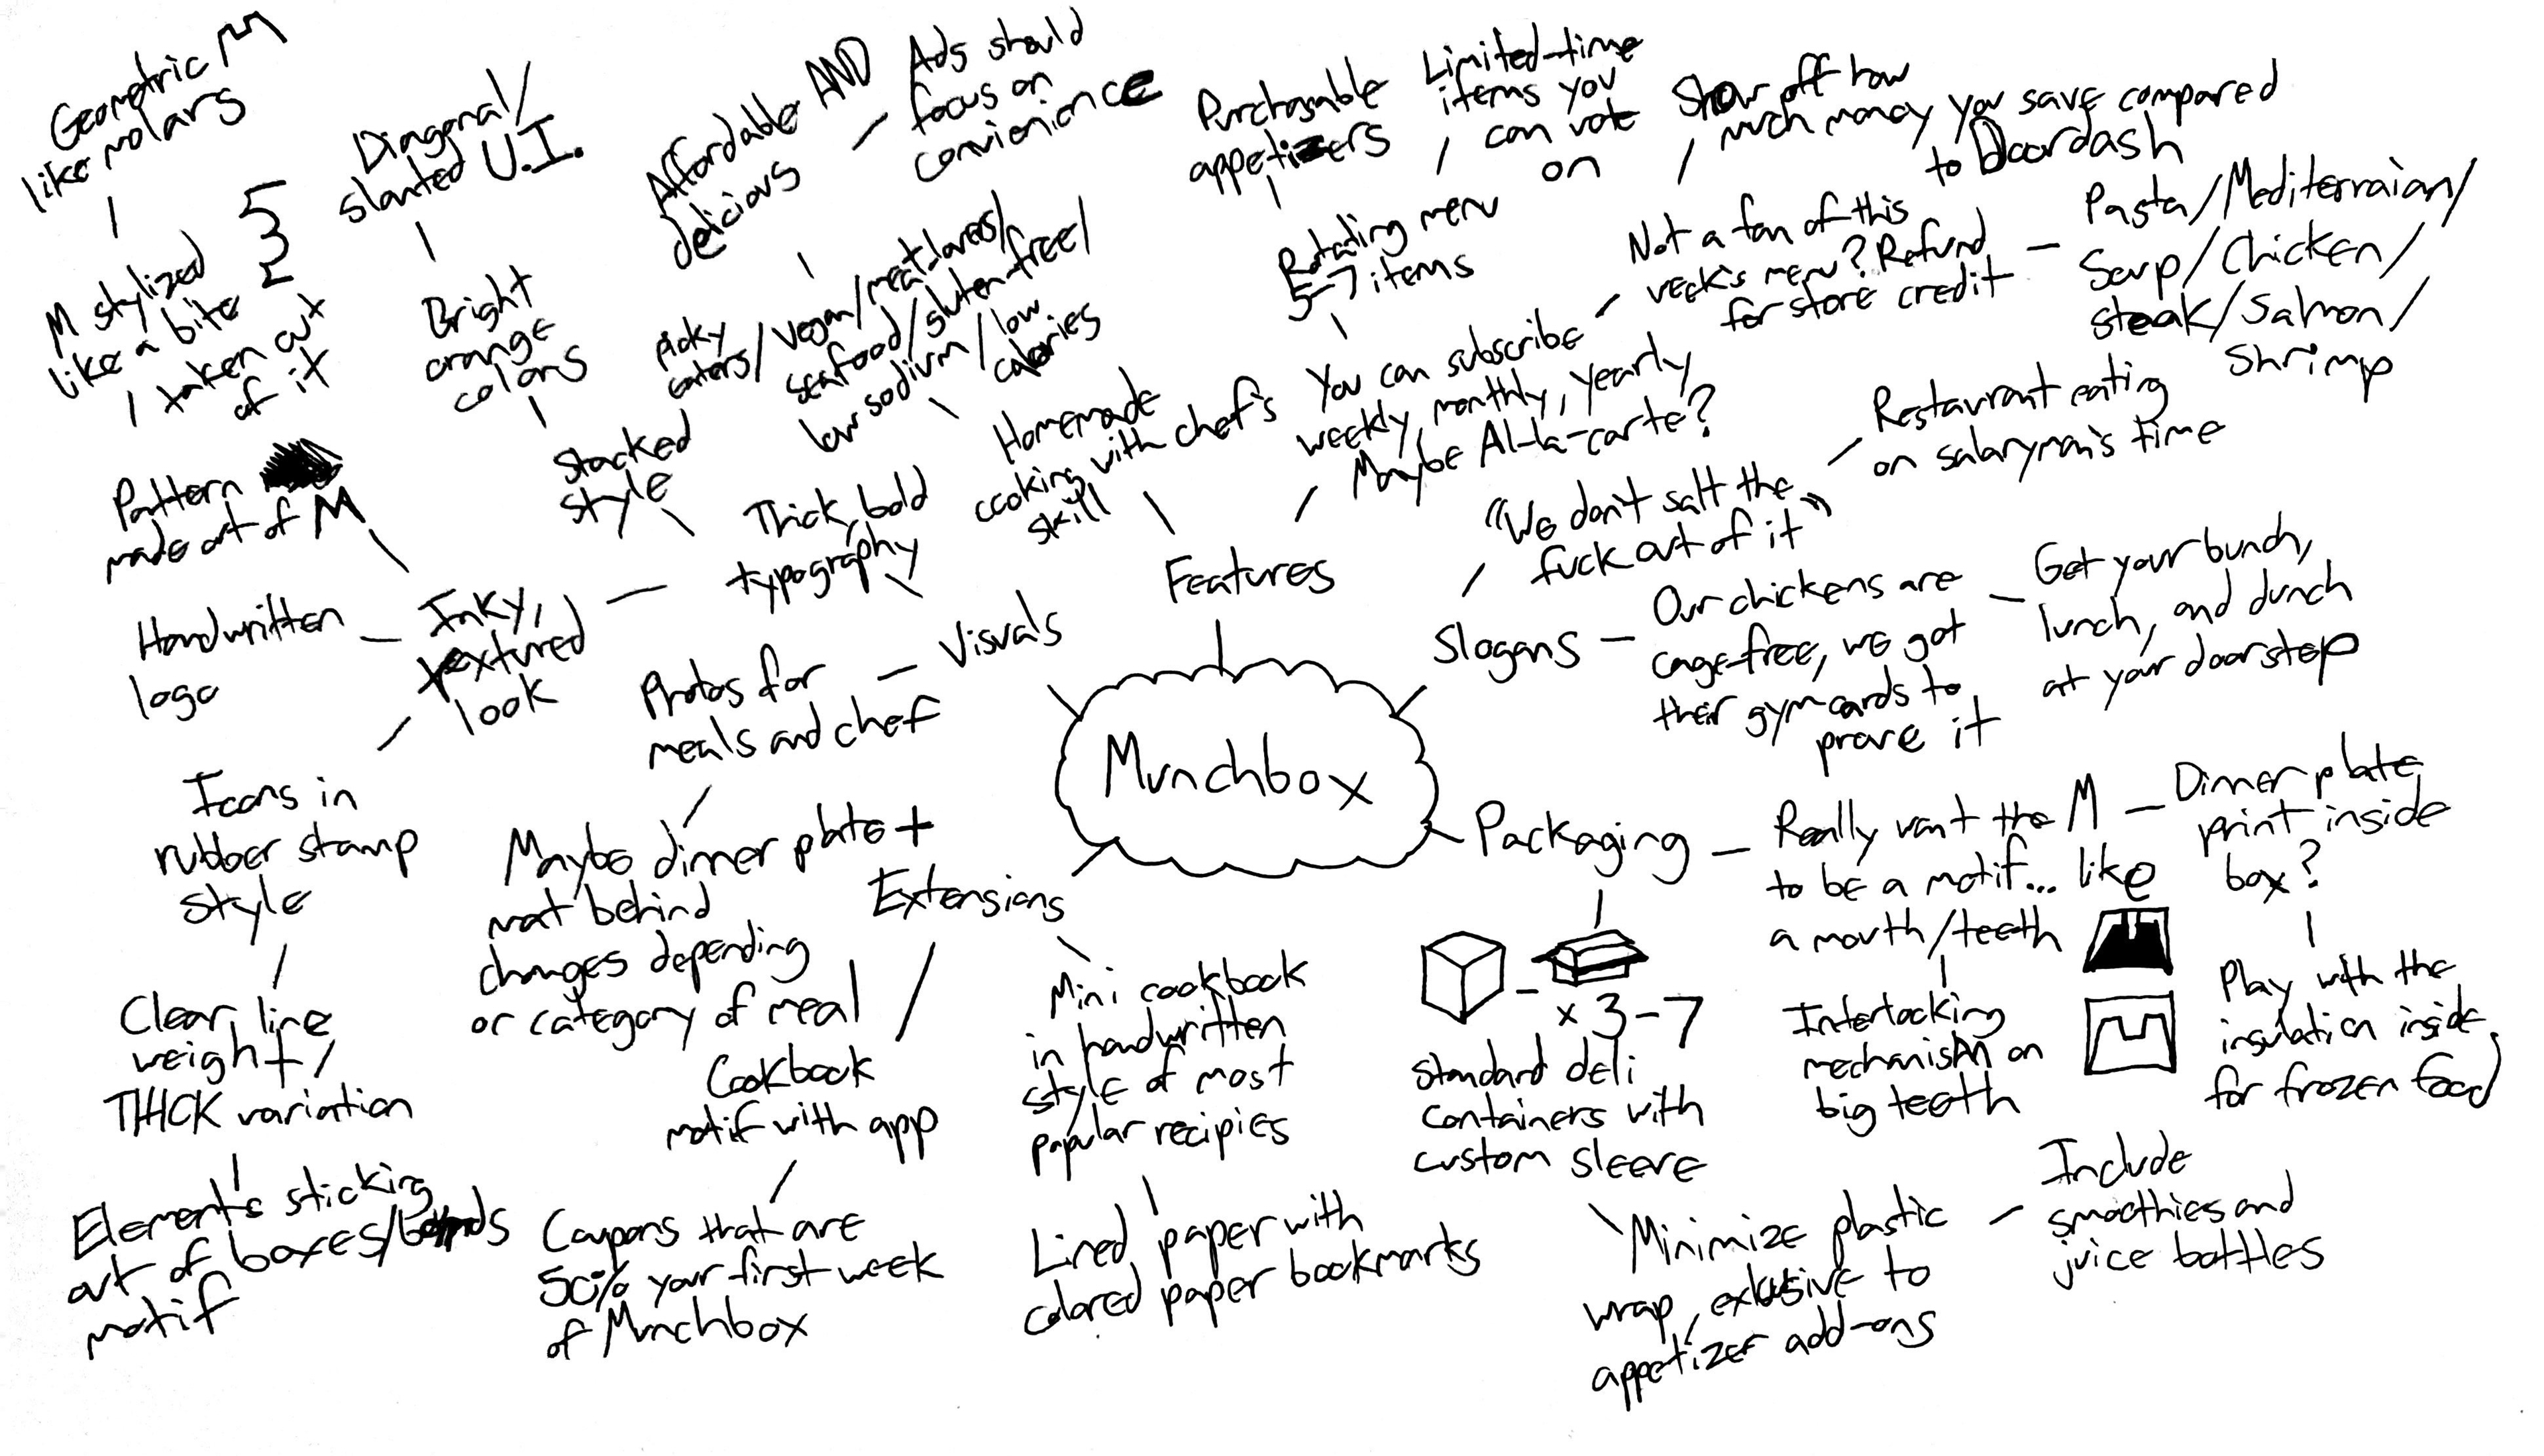 Geometric M
like molars
M stylized
like a bite
taken out
of it
Pattern
made out of M
Handwritten
logo
Inky,
textured
look
Icons in
rubber stamp
style
Clear line
weight/
THICK variation
Elements sticking
out of boxes/
motif
Diagonal/
slanted U.I.
Bright
orange
colors
stacked
style
Thick, bold
typography
Visuals
Photos for
meals and chef
Maybe dinner plate +
mat behind
changes depending
or category of meal
Affordable AND
delicious
Ads should
focus on
convienience
picky
eaters/vegan/meat-lovers/
seafood/gluten-free/
low sodium/low
calories
Homemade
cooking with chef's
skill
Features
Purchasable
appetizers
Limited-time
items you
can vote
on
Show off how
much money you save compared
to Doordash
Rotating menu
5-7 items
Not a fan of this
week's menu? Refund
for store credit
Pasta/Mediterraian/
Soup/Chicken/
steak/Salmon/
Shrimp
You can subscribe
weekly, monthly, yearly
Maybe Al-la-carte?
Restaurant eating
on salaryman's time
"We don't salt the
fuck out of it"
Slogans
Our chickens are
cage-free, we got
their gym cards to
prove it
Get your bunch,
lunch, and dunch
at your doorstep
Munchbox
Packaging
Really want the M
to be a motif... like
a mouth/teeth
Dinner plate
print inside
box?
Play with the
insulation inside
for frozen food
Interlocking
mechanism on
big teeth
x 3-7
standard deli
containers with
custom sleeve
Minimize plastic
wrap, exlusive to
appetizer add-ons
Include
smoothies and
juice bottles
Extensions
Cookbook
motif with app
Coupons that are
50% your first week
of Munchbox
Mini cookbook
in handwritten
style of most
popular recipies
Lined paper with
colored paper bookmarks